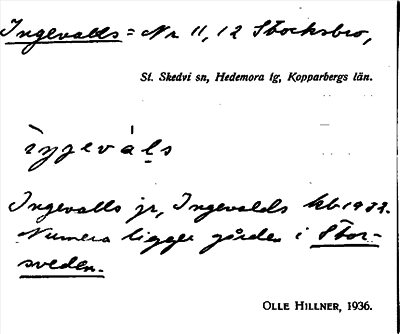 Ingevalls = Nr 11, 12 Stocksbro,
St. Skedvi sn, Hedemora tg, Kopparbergs län.
ìŋgevàl̥s
Ingevalls jr, Ingevalds kb 1932.
Numera ligger gården i Stor-
sveden.
OLLE HILLNER, 1936.